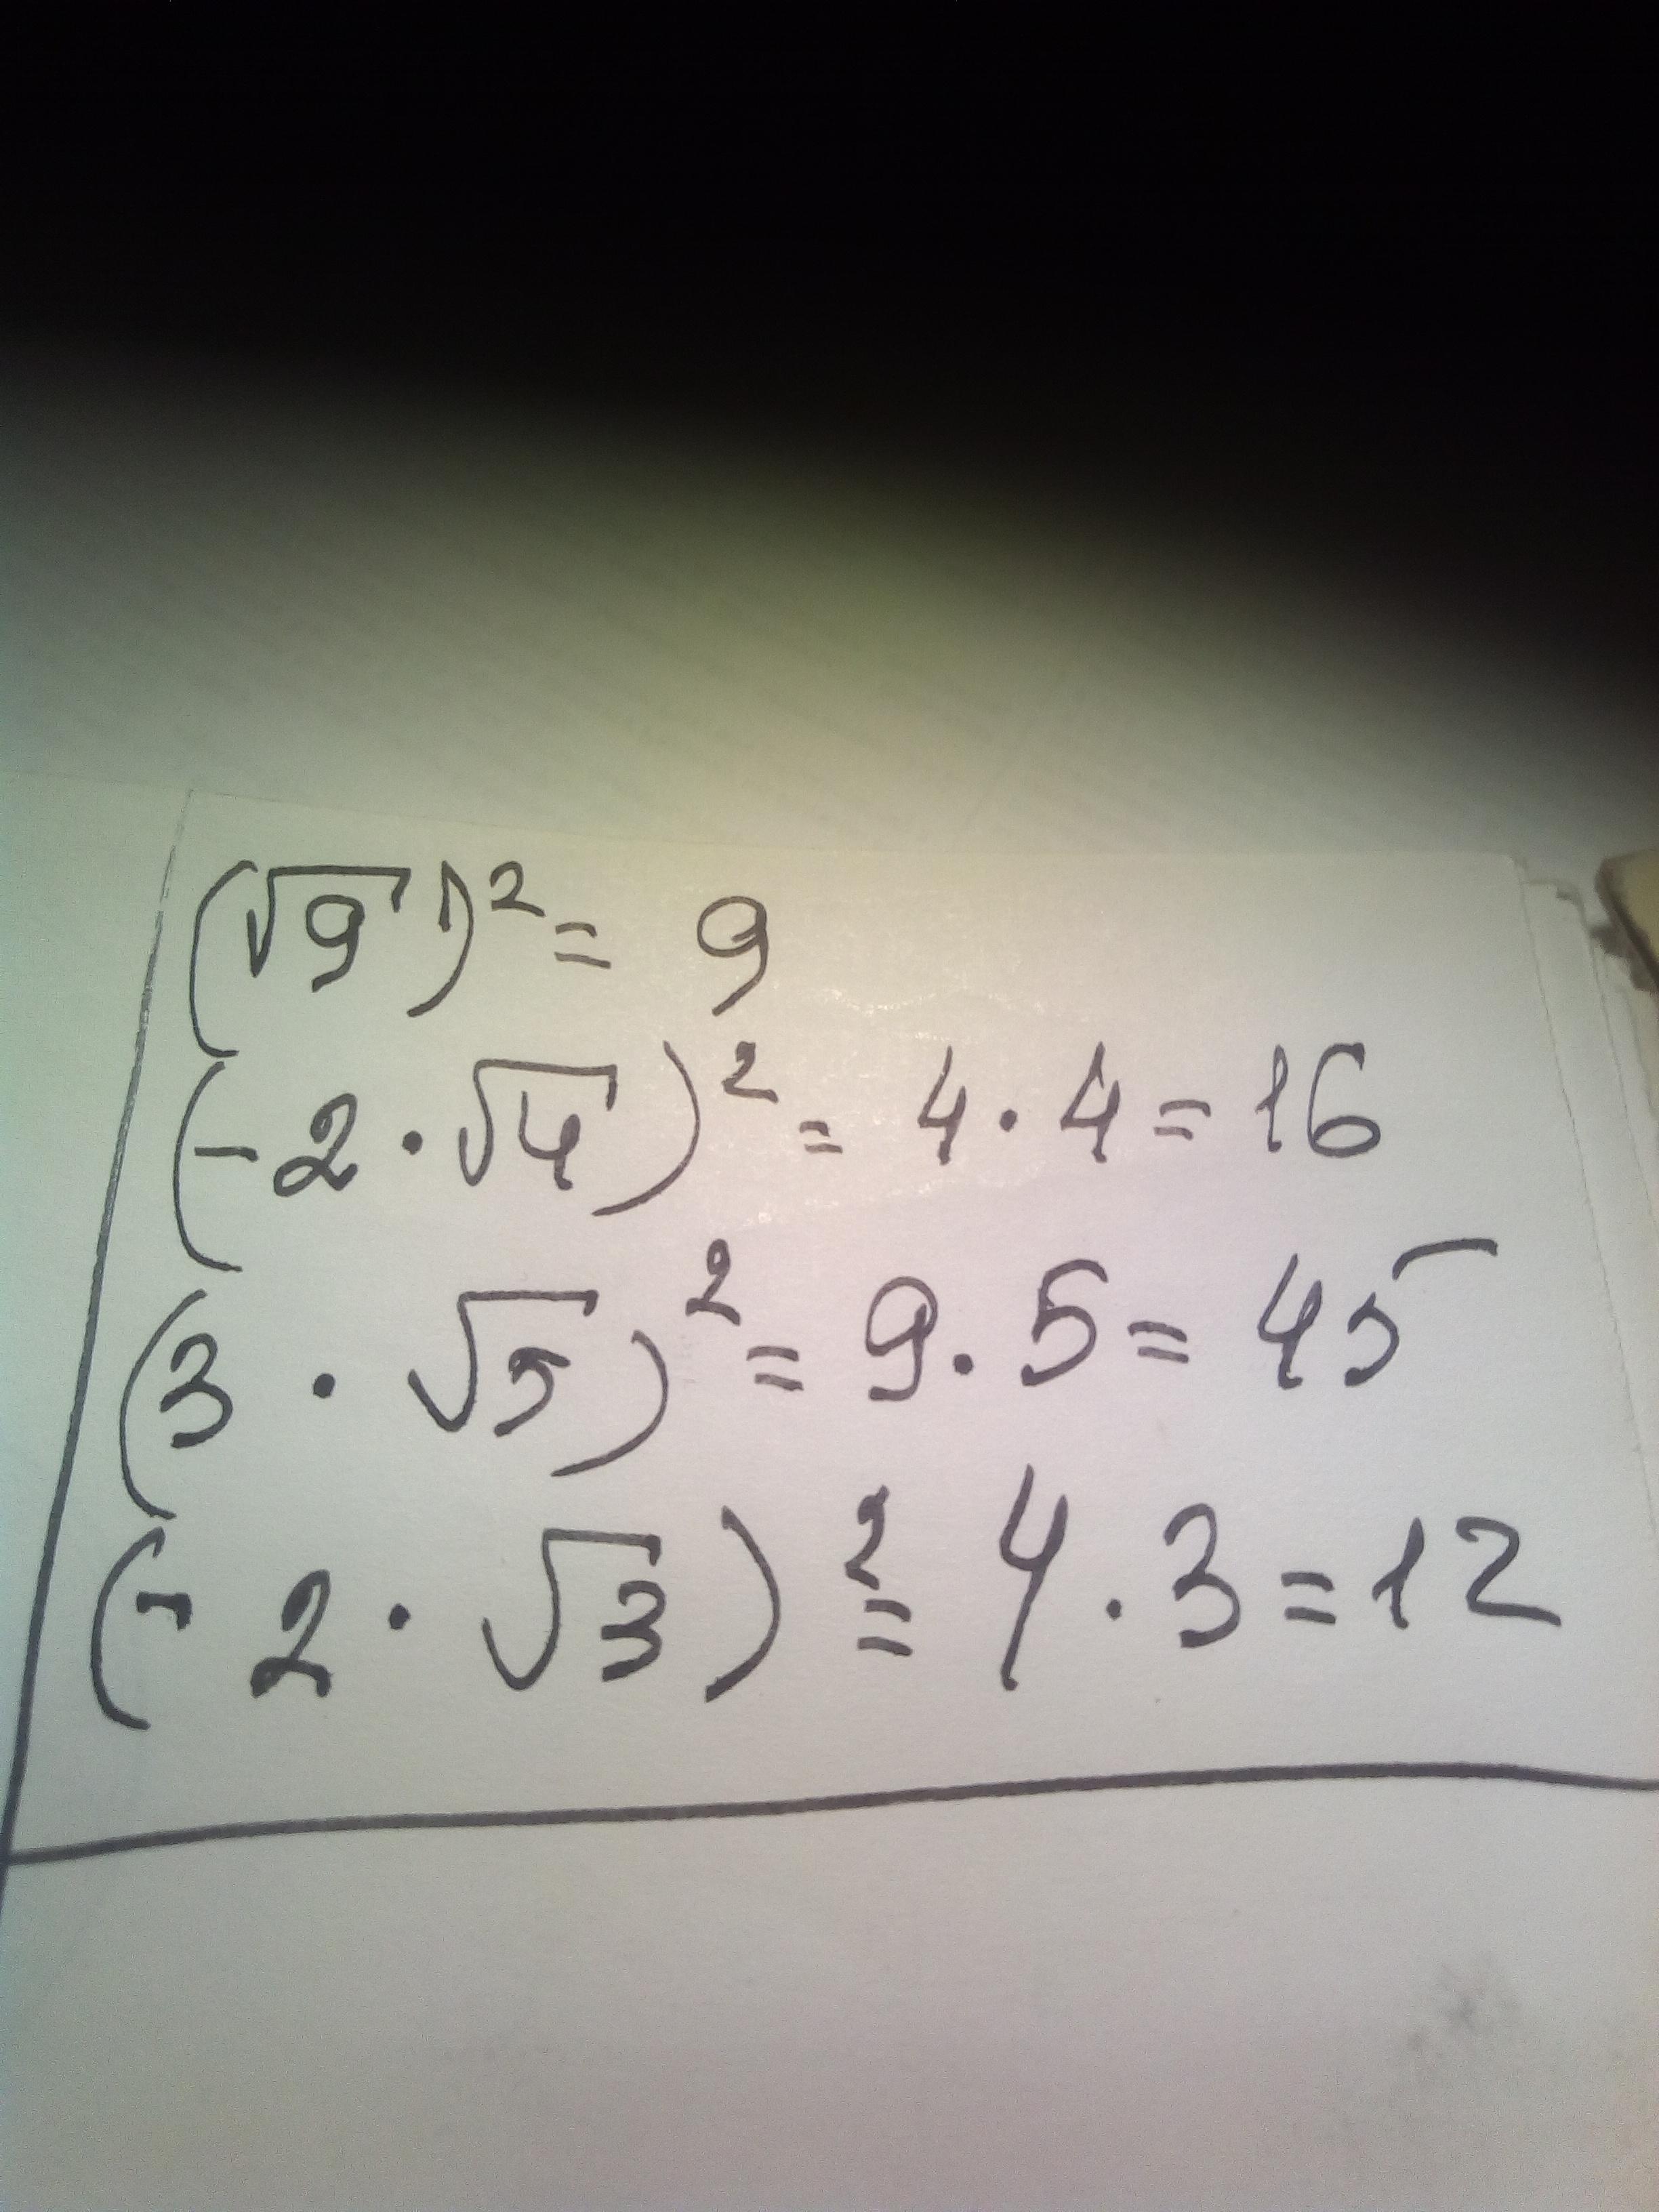 (√9)² = 9
(-2·√4)² = 4·4=16
(3·√5)² = 9·5=45
(-2·√3)² = 4·3=12